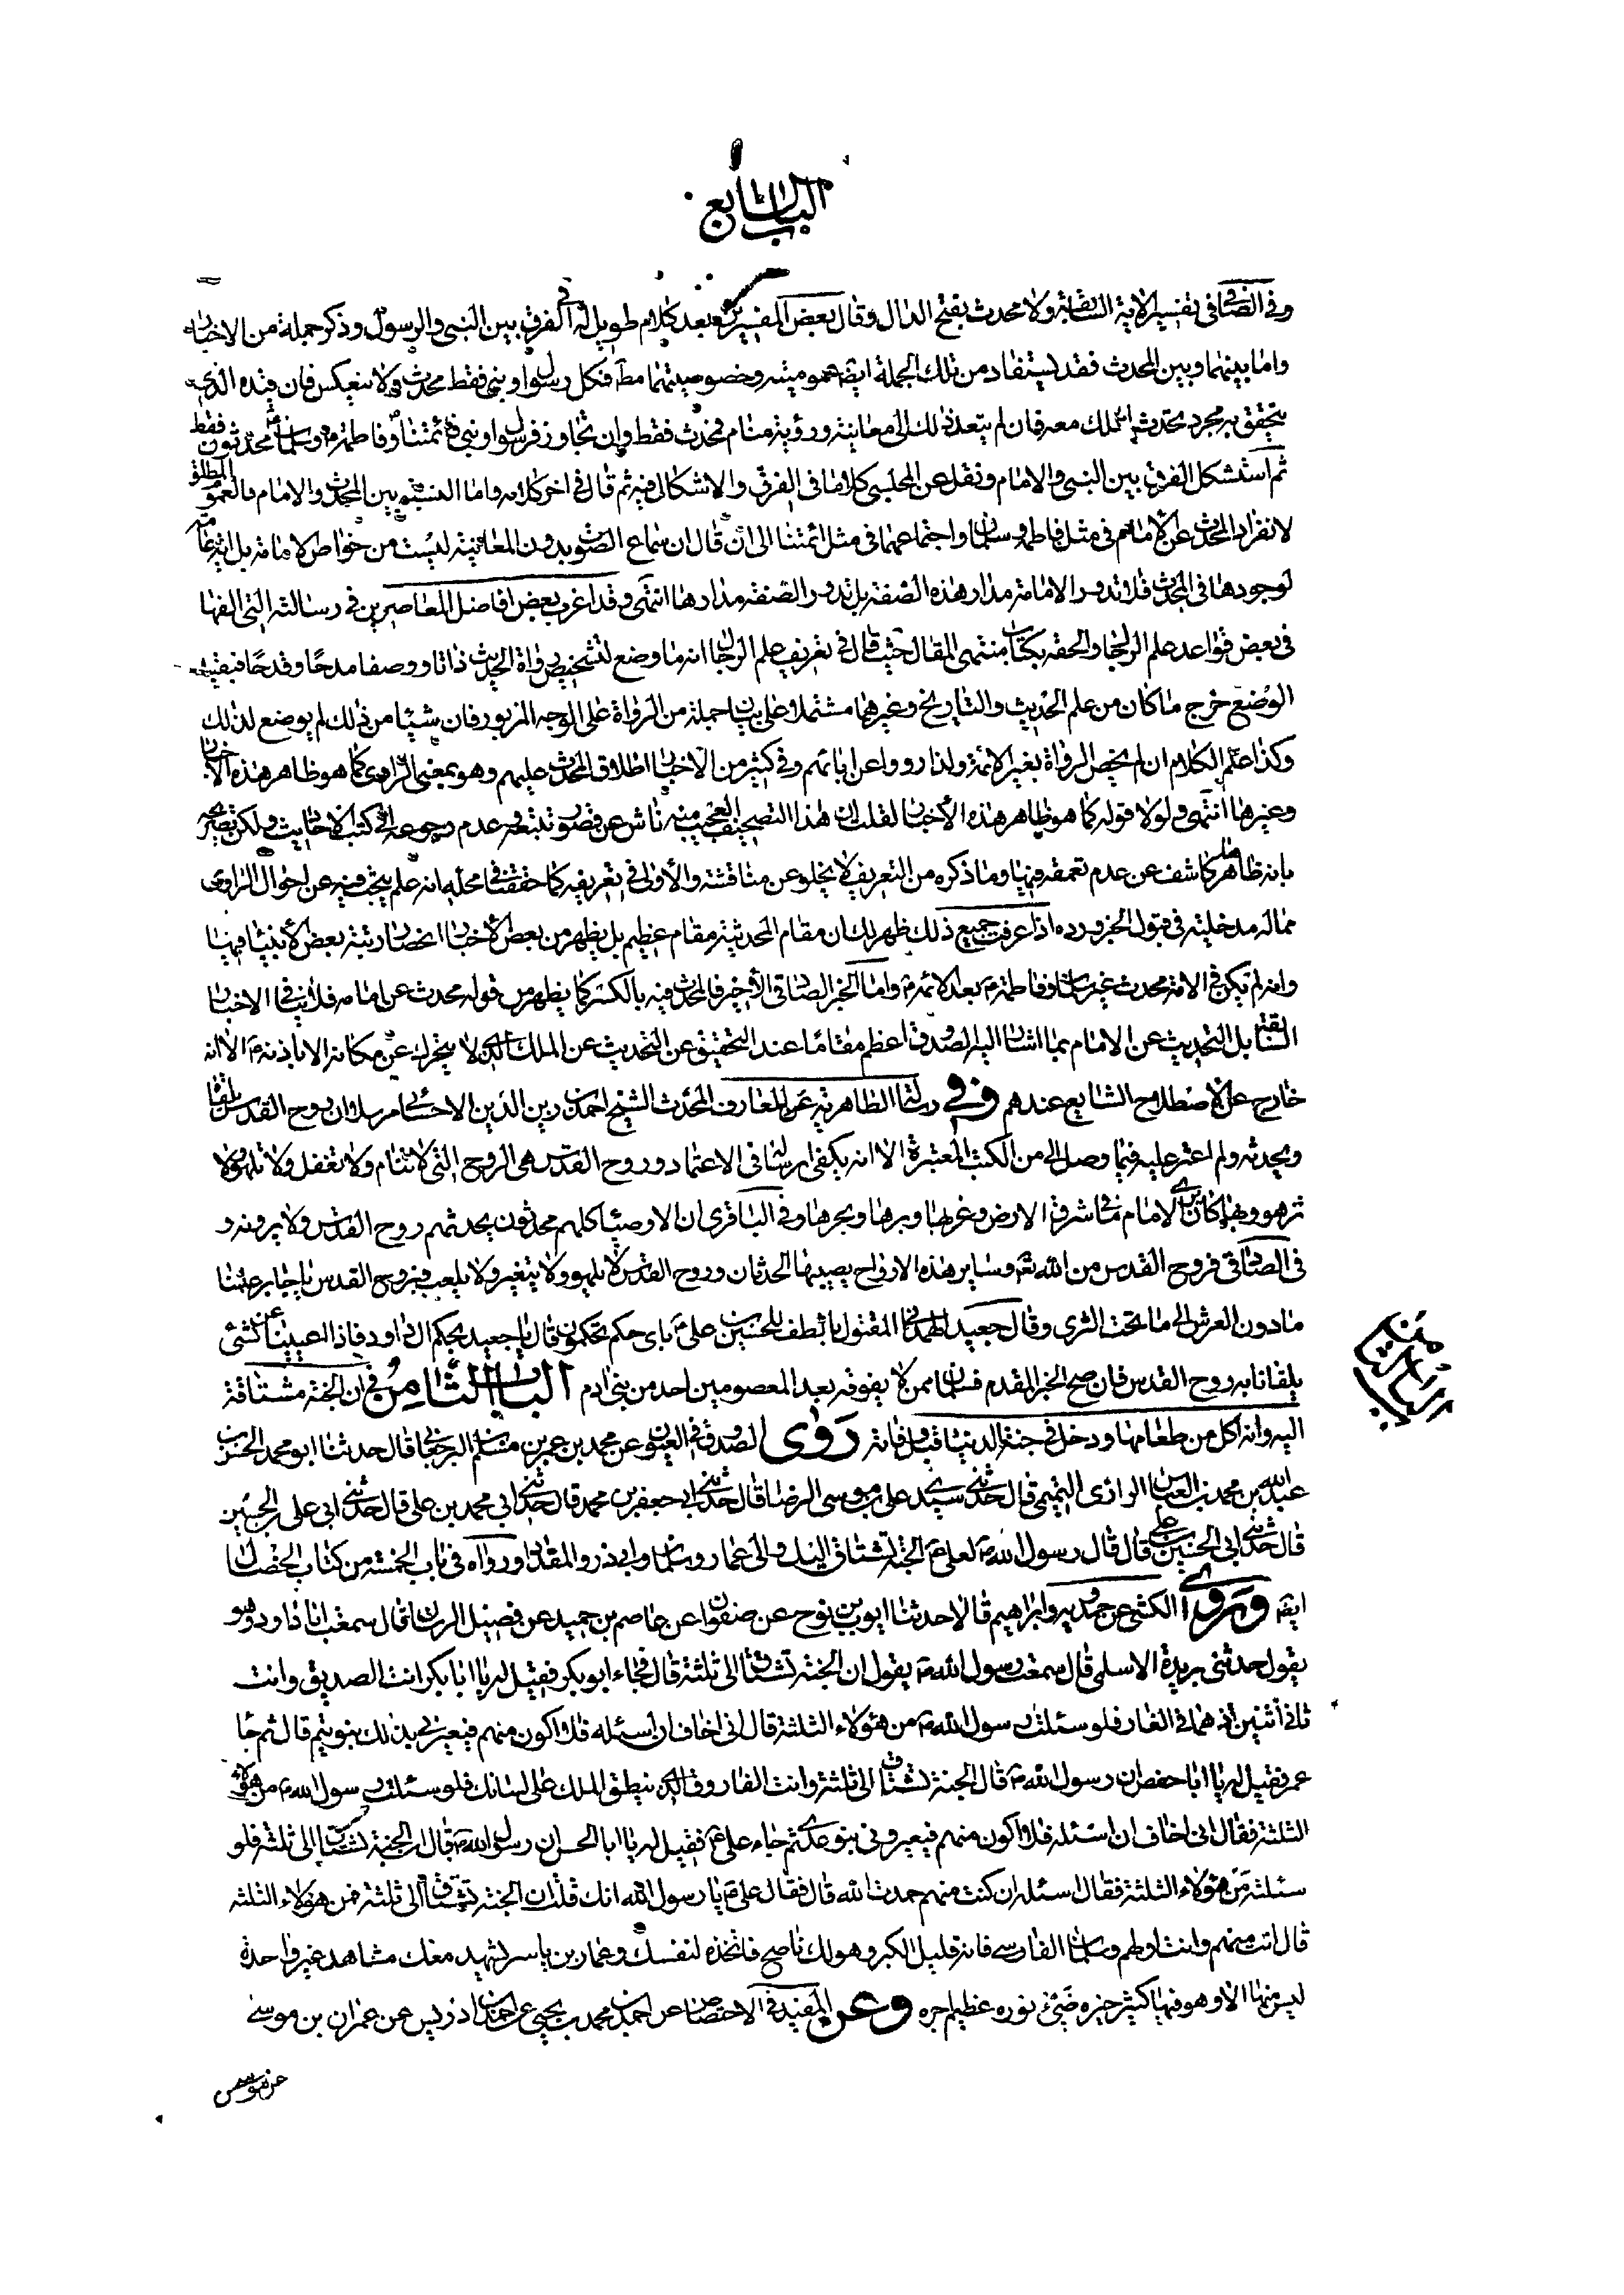 الباب السابع
وفى الصافى فى تفسير الاية السابقة ولا محدث بفتح الدال وقال بعض المفسرين بعد كلام طويل له فى الفرق بين النبى والرسول وذكر جملة من الاخبار
واما بينهما وبين المحدث فقد يستفاد من تلك الجملة ايضا عموميته وخصوصيتهما مط فكل رسول او نبى فقط محدث ولا ينعكس فان قيده الذى
يتحقق به مجرد تحديث الملك معه فان لم يتعد ذلك الى معاينة ورؤية منام فمحدث فقط وان تجاوز فرسول او نبى فائمتنا وفاطمة وسلمان محدثون فقط
ثم استشكل الفرق بين النبى والامام ونقل عن المجلسى كلاما فى الفرق والاشكال فيه ثم قال فى اخر كلامه واما النسبة بين المحدث والامام فالعموم المطلق
لانفراد المحدث عن الامام فى مثل فاطمة وسلمان واجتماعهما فى مثل ائمتنا الى ان قال ان سماع الصوت بدون المعاينة ليست من خواص الامامة بل انه عامة
لوجودها فى المحدث فلا تدور الامامة مدار هذه الصفة بل تدور الصفة مدارها انتهى وقد اغرب بعض افاضل المعاصرين فى رسالته التى الفها
فى بعض قواعد علم الرجال والحقه بكتاب منتهى المقال حيث قال فى تعريف علم الرجال انه ما وضع لتشخيص رواة الحديث ذاتا ووصفا مدحا وقدحا فبقيد
الوضع خرج ما كان من علم الحديث والتاريخ وغيرهما مشتملا على بيان جملة من الرواة على الوجه المزبور فان شيئا من ذلك لم يوضع لذلك
وكذا علم الكلام ان لم يخص الرواة بغير الائمة ولذا رووا عن ابائهم وفى كثير من الاخبار اطلاق المحدث عليهم وهو بمعنى الراوى كما هو ظاهر هذه الاخبار
وغيرها انتهى ولولا قوله كما هو ظاهر هذه الاخبار لقلت ان هذا التصحيف العجيب منه ناش عن قصور تتبعه وعدم رجوعه الى كتب الاحاديث ولكن تصريحه
بانه ظاهرها كاشف عن عدم تعمقه فيها وما ذكره من التعريف لا يخلو عن مناقشة والأولى فى تعريفه كما حققت فى محله انه علم يبحث فيه عن احوال الراوى
مما له مدخلية فى قبول الخبر ورده اذا عرفت جميع ذلك ظهر لك ان مقام المحدثية مقام عظيم بل يظهر من بعض الاخبار انحصار رتبة بعض الانبياء فيها
وانه لم يكن فى الامة محدث غير سلمان وفاطمة بعد الائمة واما الخبر الصادقى الأخير فالمحدث فيه بالكسر كما يظهر من قوله محدث عن امامه فلا ينافى الاخبار
السابقة بل التحديث عن الامام بما اشار اليه الصدوق اعظم مقاما عند التحقيق عن التحديث عن الملك الذى لا يتحرك عن مكانه الا باذنه الا انه
خارج عن الاصطلاح الشايع عندهم وفى رسالة الطاهرية عن العارف المحدث الشيخ احمد بن زين الدين الاحسائى مرسلا ان روح القدس يلقاه
ويحدثه ولم اعثر عليه فيما وصل الى من الكتب المعتبرة الا انه يكفى ارساله فى الاعتماد وروح القدس هى الروح التى لا تنام ولا تغفل ولا تلهو ولا
تزهو وبها كان يرى الامام ما فى شرق الارض وغربها وبرها وبحرها وفى الباقرى ان الاوصياء كلهم محدثون يحدثهم روح القدس ولا يرونه و
فى الصادقى فروح القدس من الله وساير هذه الارواح يصيبها الحدثان وروح القدس لا يلهو ولا يتغير ولا يلعب وبروح القدس يا جابر علمنا
ما دون العرش الى ما تحت الثرى وقال جعيد الهمدانى المقتول بالطف للحسين بن على باى حكم تحكمون قال يا جعيد بحكم ال داود فاذا اعيينا عن شئ
يلقانا به روح القدس فان صح الخبر المقدم فسلمان ممن لا يفوقه بعد المعصومين احد من بنى ادم الباب الثامن فى ان الجنة مشتاقة
اليه وانه اكل من طعامها ودخل فى جنة الدنيا قبل وفاته روى الصدوق فى العيون عن محمد بن عمر بن مسلم الجعابى قال حدثنا ابو محمد الحسن بن
عبد الله بن محمد بن العباس الرازى التميمى قال حدثنى سيدى على بن موسى الرضا قال حدثنى ابى جعفر بن محمد قال حدثنى ابى محمد بن على قال حدثنى ابى على بن الحسين
قال حدثنى ابى الحسين بن على قال قال رسول الله لعلى الجنة تشتاق اليك والى عمار وسلمان وابى ذر والمقداد ورواه فى باب الخمسة من كتاب الخصال
ايضا وروى الكشى عن حمدويه وابراهيم قالا حدثنا ايوب بن نوح عن صفوان عن عاصم بن حميد عن فضيل الرسان قال سمعت ابا داود وهو
يقول حدثنى بريدة الاسلمى قال سمعت رسول الله يقول ان الجنة تشتاق الى ثلثة قال فجاء ابو بكر فقيل له يا ابا بكر انت الصديق وانت
ثانى اثنين اذ هما فى الغار فلو سئلت رسول الله من هؤلاء الثلثة قال انى اخاف ان اسئله فلا اكون منهم فيعيرنى بذلك بنو تيم قال ثم جا
عمر فقيل له يا ابا حفص ان رسول الله قال الجنة تشتاق الى ثلثة وانت الفاروق الذى ينطق الملك على لسانك فلو سئلت رسول الله من هؤلاء
الثلثة فقال انى اخاف ان اسئله فلا اكون منهم فيعيرونى بنو عدى ثم جاء على فقيل له يا ابا الحسن ان رسول الله قال ان الجنة تشتاق الى ثلثة فلو
سئلته من هؤلاء الثلثة فقال اسئله ان كنت منهم حمدت الله قال فقال على يا رسول الله انك قلت ان الجنة تشتاق الى ثلثة فمن هؤلاء الثلثة
قال انت منهم وانت اولهم وسلمان الفارسى فانه قليل الكبر وهو لك ناصح فاتخذه لنفسك وعمار بن ياسر يشهد معك مشاهد غير واحدة
ليس منها الا وهو فيها كثير خيره ضيئ نوره عظيم اجره وعن المفيد فى الاختصاص عن احمد بن محمد بن يحيى عن احمد بن ادريس عن عمران بن موسى
الباب الثامن
عن موسى